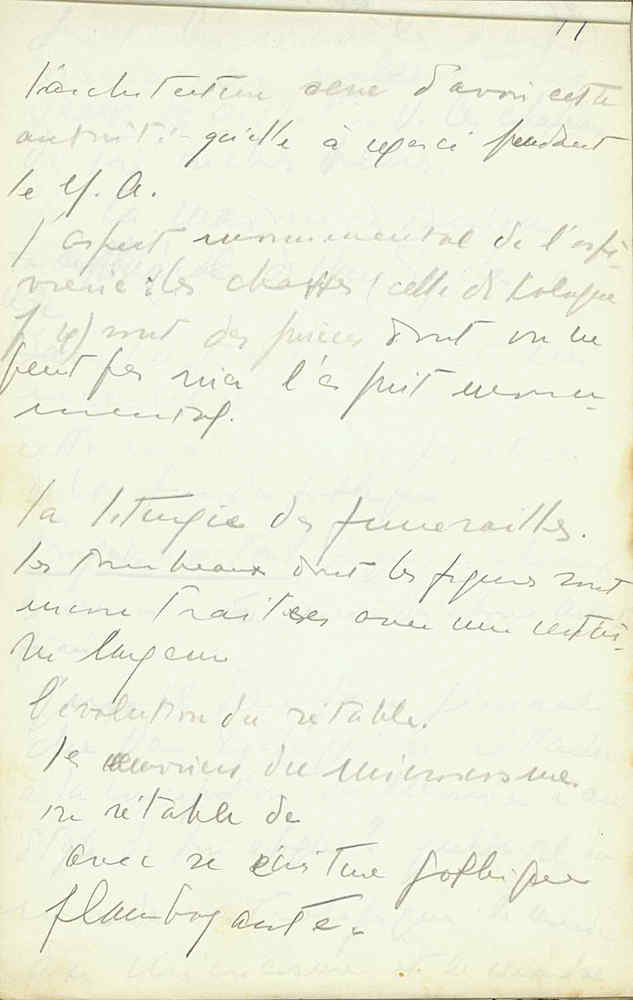 11
l'architecture cesse d'avoir cette
autorité qu'elle a exercé pendant
le M. A.
l'aspect monumental de l'orfè-
vrerie: les chasses (celle de Cologne
sont des pièces dont on ne
peut pas nier l'esprit monu-
mental.
la liturgie des funerailles.
les tombeaux dont les figures sont
encore traitées avec une certai-
ne largeur
l'évolution du rétable.
les ouvriers du microcosme.
un rétable de
avec sa gothique
flamboyante.